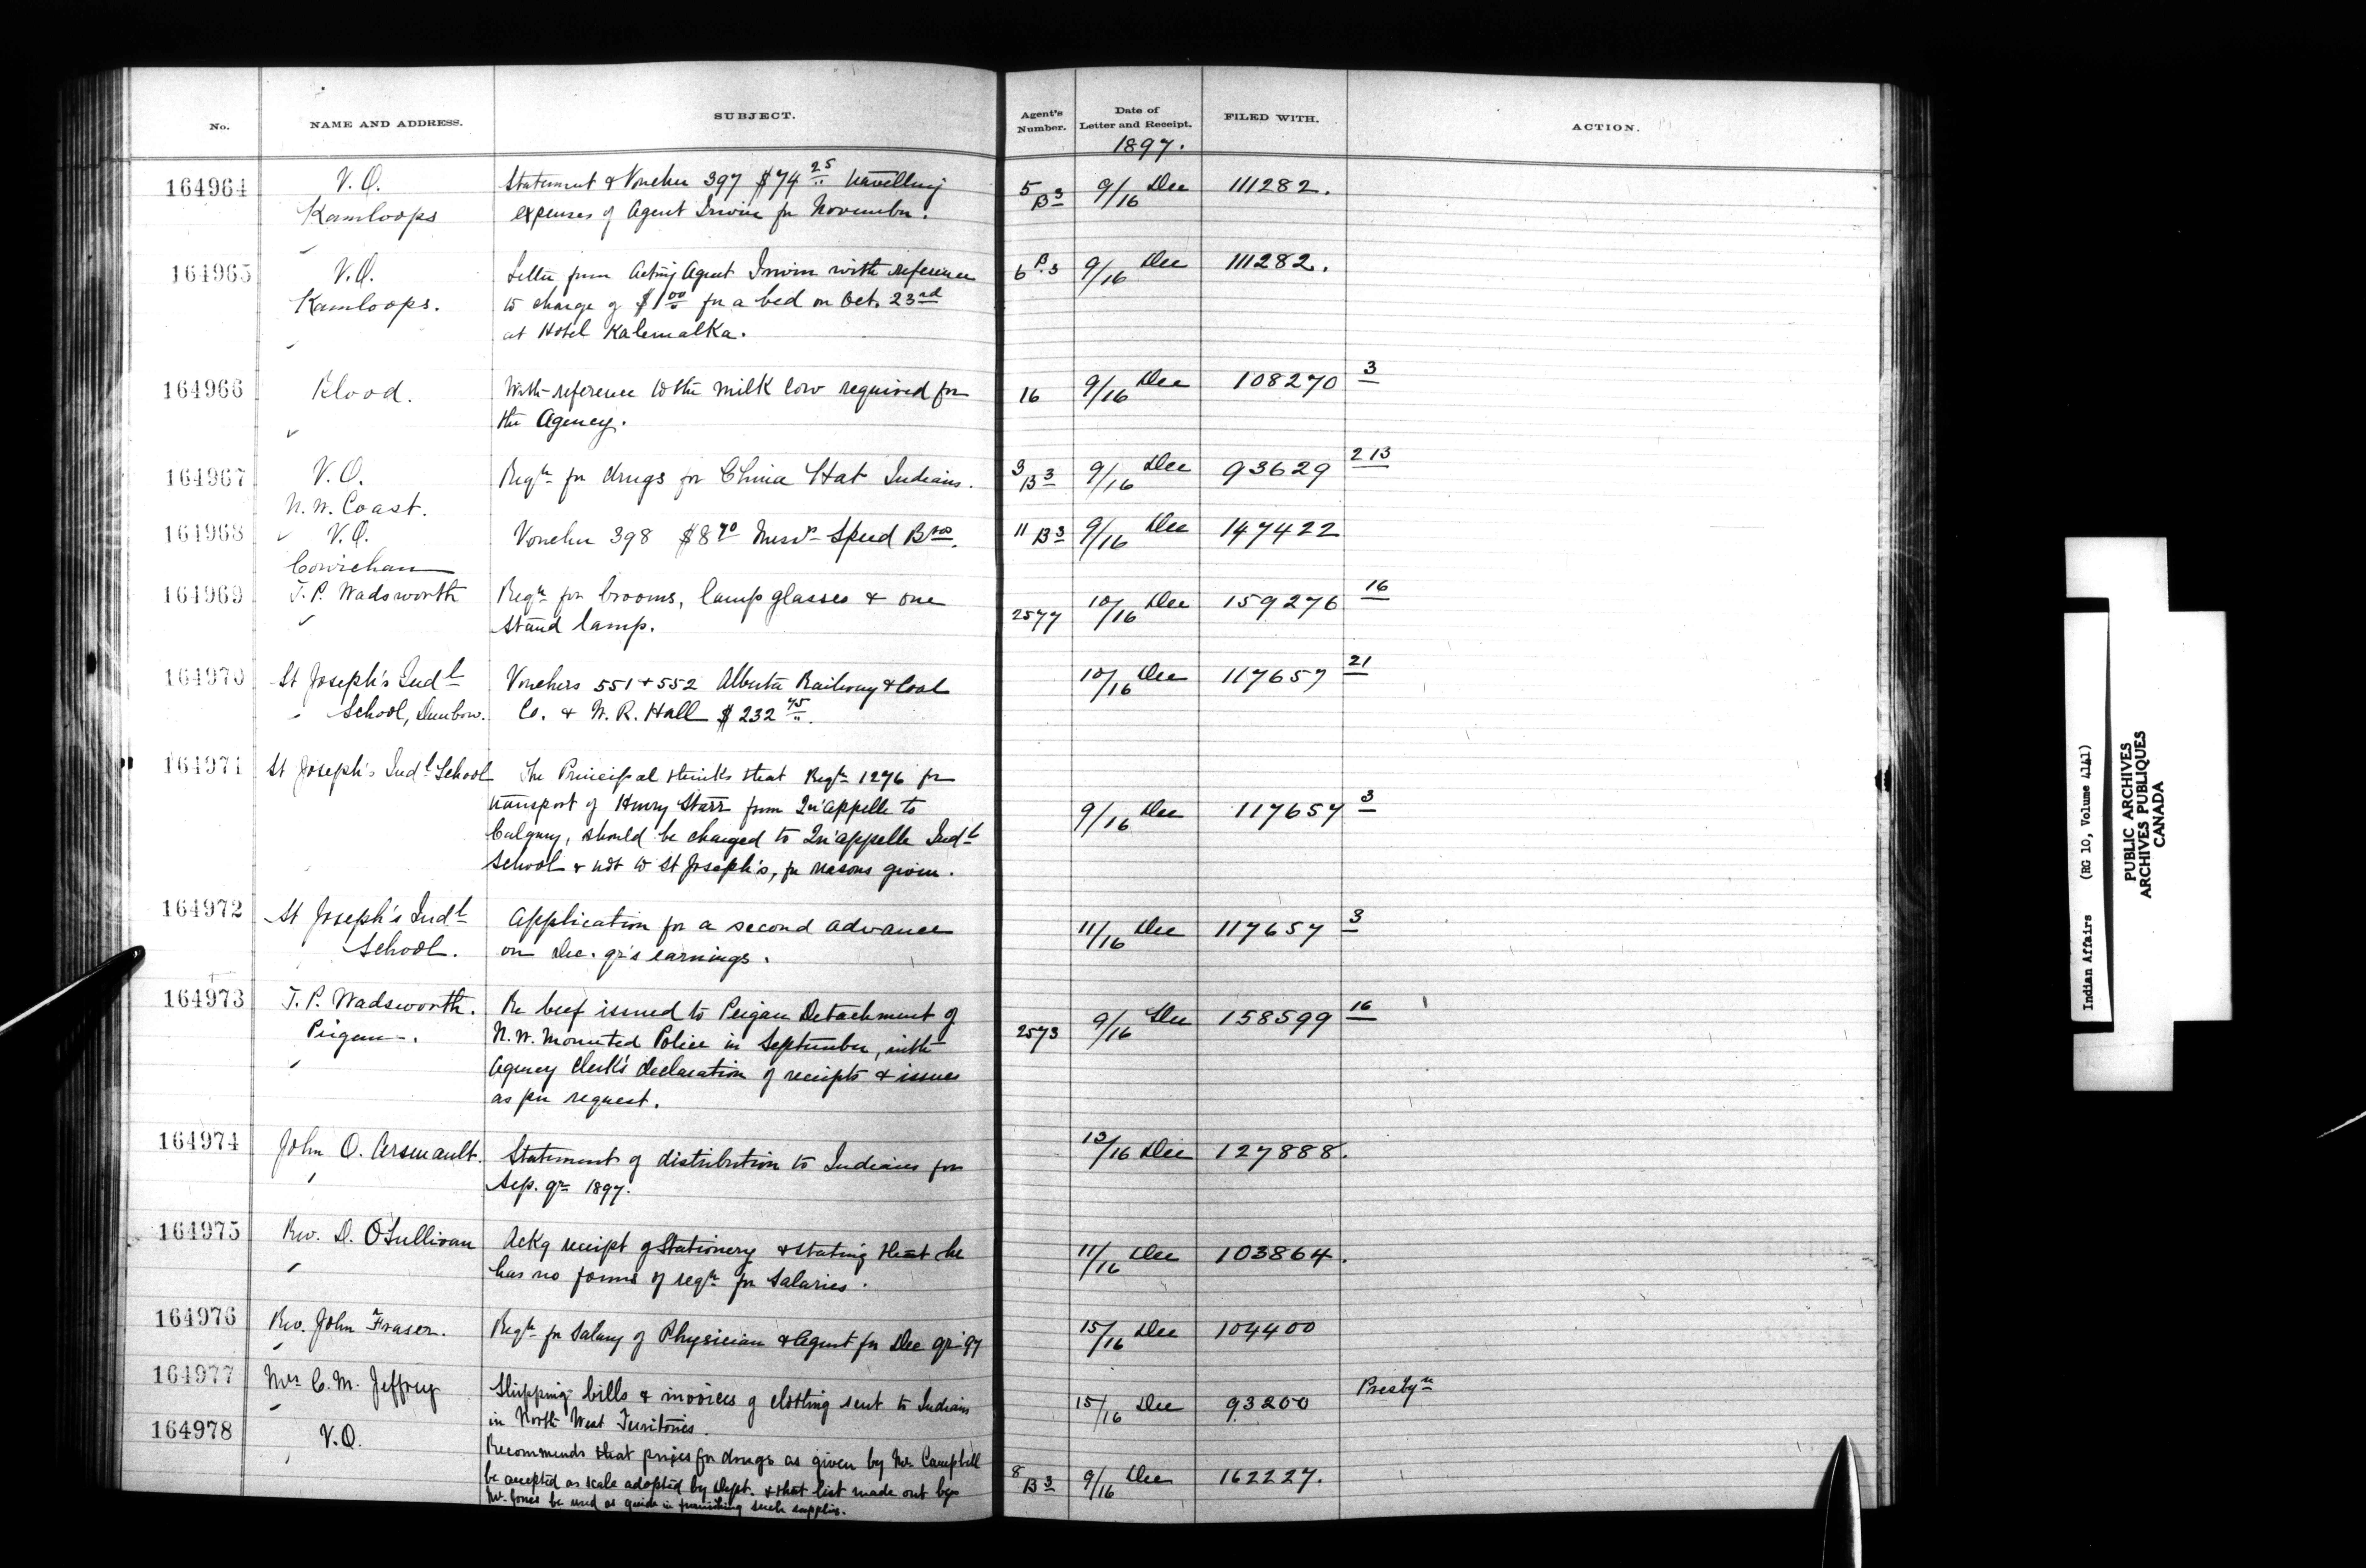 No. NAME AND ADDRESS. SUBJECT. Agent's Number. Date of Letter and Receipt. FILED WITH. ACTION.
1897.
164964 V.O. Statement & Voucher 397 $74 25 travelling 5 B3 9/16 Dec 111282.
Kamloops expenses of Agent Irwin for November.
164965 V.O. Letter from Acting Agent Irwin with reference 6 B.3 9/16 Dec 111282.
Kamloops. to charge of $1 00 for a bed on Oct. 23rd
at Hotel Kalemalka.
164966 Blood. With reference to the milk cow required for 16 9/16 Dec 108270 3
the Agency.
164967 V.O. Reqn for drugs for China Hat Indians. 3 B3 9/16 Dec 93629 213
N.W. Coast.
164968 V.O. Voucher 398 $8 70 Messrs Speed Bros. 11 B3 9/16 Dec 147422
Cowichan
164969 T.P. Wadsworth Reqn for brooms, lamp glasses & one 2577 10/16 Dec 159276 16
stand lamp.
164970 St Joseph's Indl Vouchers 551 + 552 Alberta Railway & Coal 10/16 Dec 117657 21
School, Dunbow. Co. & W. R. Hall $232 45.
164971 St Joseph's Indl School The Principal thinks that Reqn 1276 for
transport of Henry Starr from Qu'appelle to 9/16 Dec 117657 3
Calgary, should be charged to Qu'appelle Indl
School & not to St Joseph's, for reasons given.
164972 St Joseph's Indl Application for a second advance 11/16 Dec 117657 3
School. on Dec. qr's earnings.
164973 T.P. Wadsworth. Re beef issued to Peigan Detachment of 2573 9/16 Dec 158599 16
Peigan. N.W. Mounted Police in September, with
Agency Clerk's declaration of receipts & issues
as per request.
164974 John O. Arsenault. Statement of distribution to Indians for 13/16 Dec 127888.
Sep. qr 1897.
164975 Rev. D. O'Sullivan Ackg receipt of Stationery & stating that he 11/16 Dec 103864.
has no forms of reqn for Salaries.
164976 Rev. John Fraser. Reqn for Salary of Physician & Agent for Dec qr '97 15/16 Dec 104400
164977 Mrs C. M. Jeffrey Shipping bills & invoices of clothing sent to Indians 15/16 Dec 93200 Presbyn
in North West Territories.
164978 V.O. Recommends that prices for drugs as given by Mr. Campbell 8 B3 9/16 Dec 162227.
be accepted as scale adopted by Dept. & that list made out by
Mr. Jones be used as guide in furnishing such supplies.
Indian Affairs (RG 10, Volume 4141)
PUBLIC ARCHIVES
ARCHIVES PUBLIQUES
CANADA